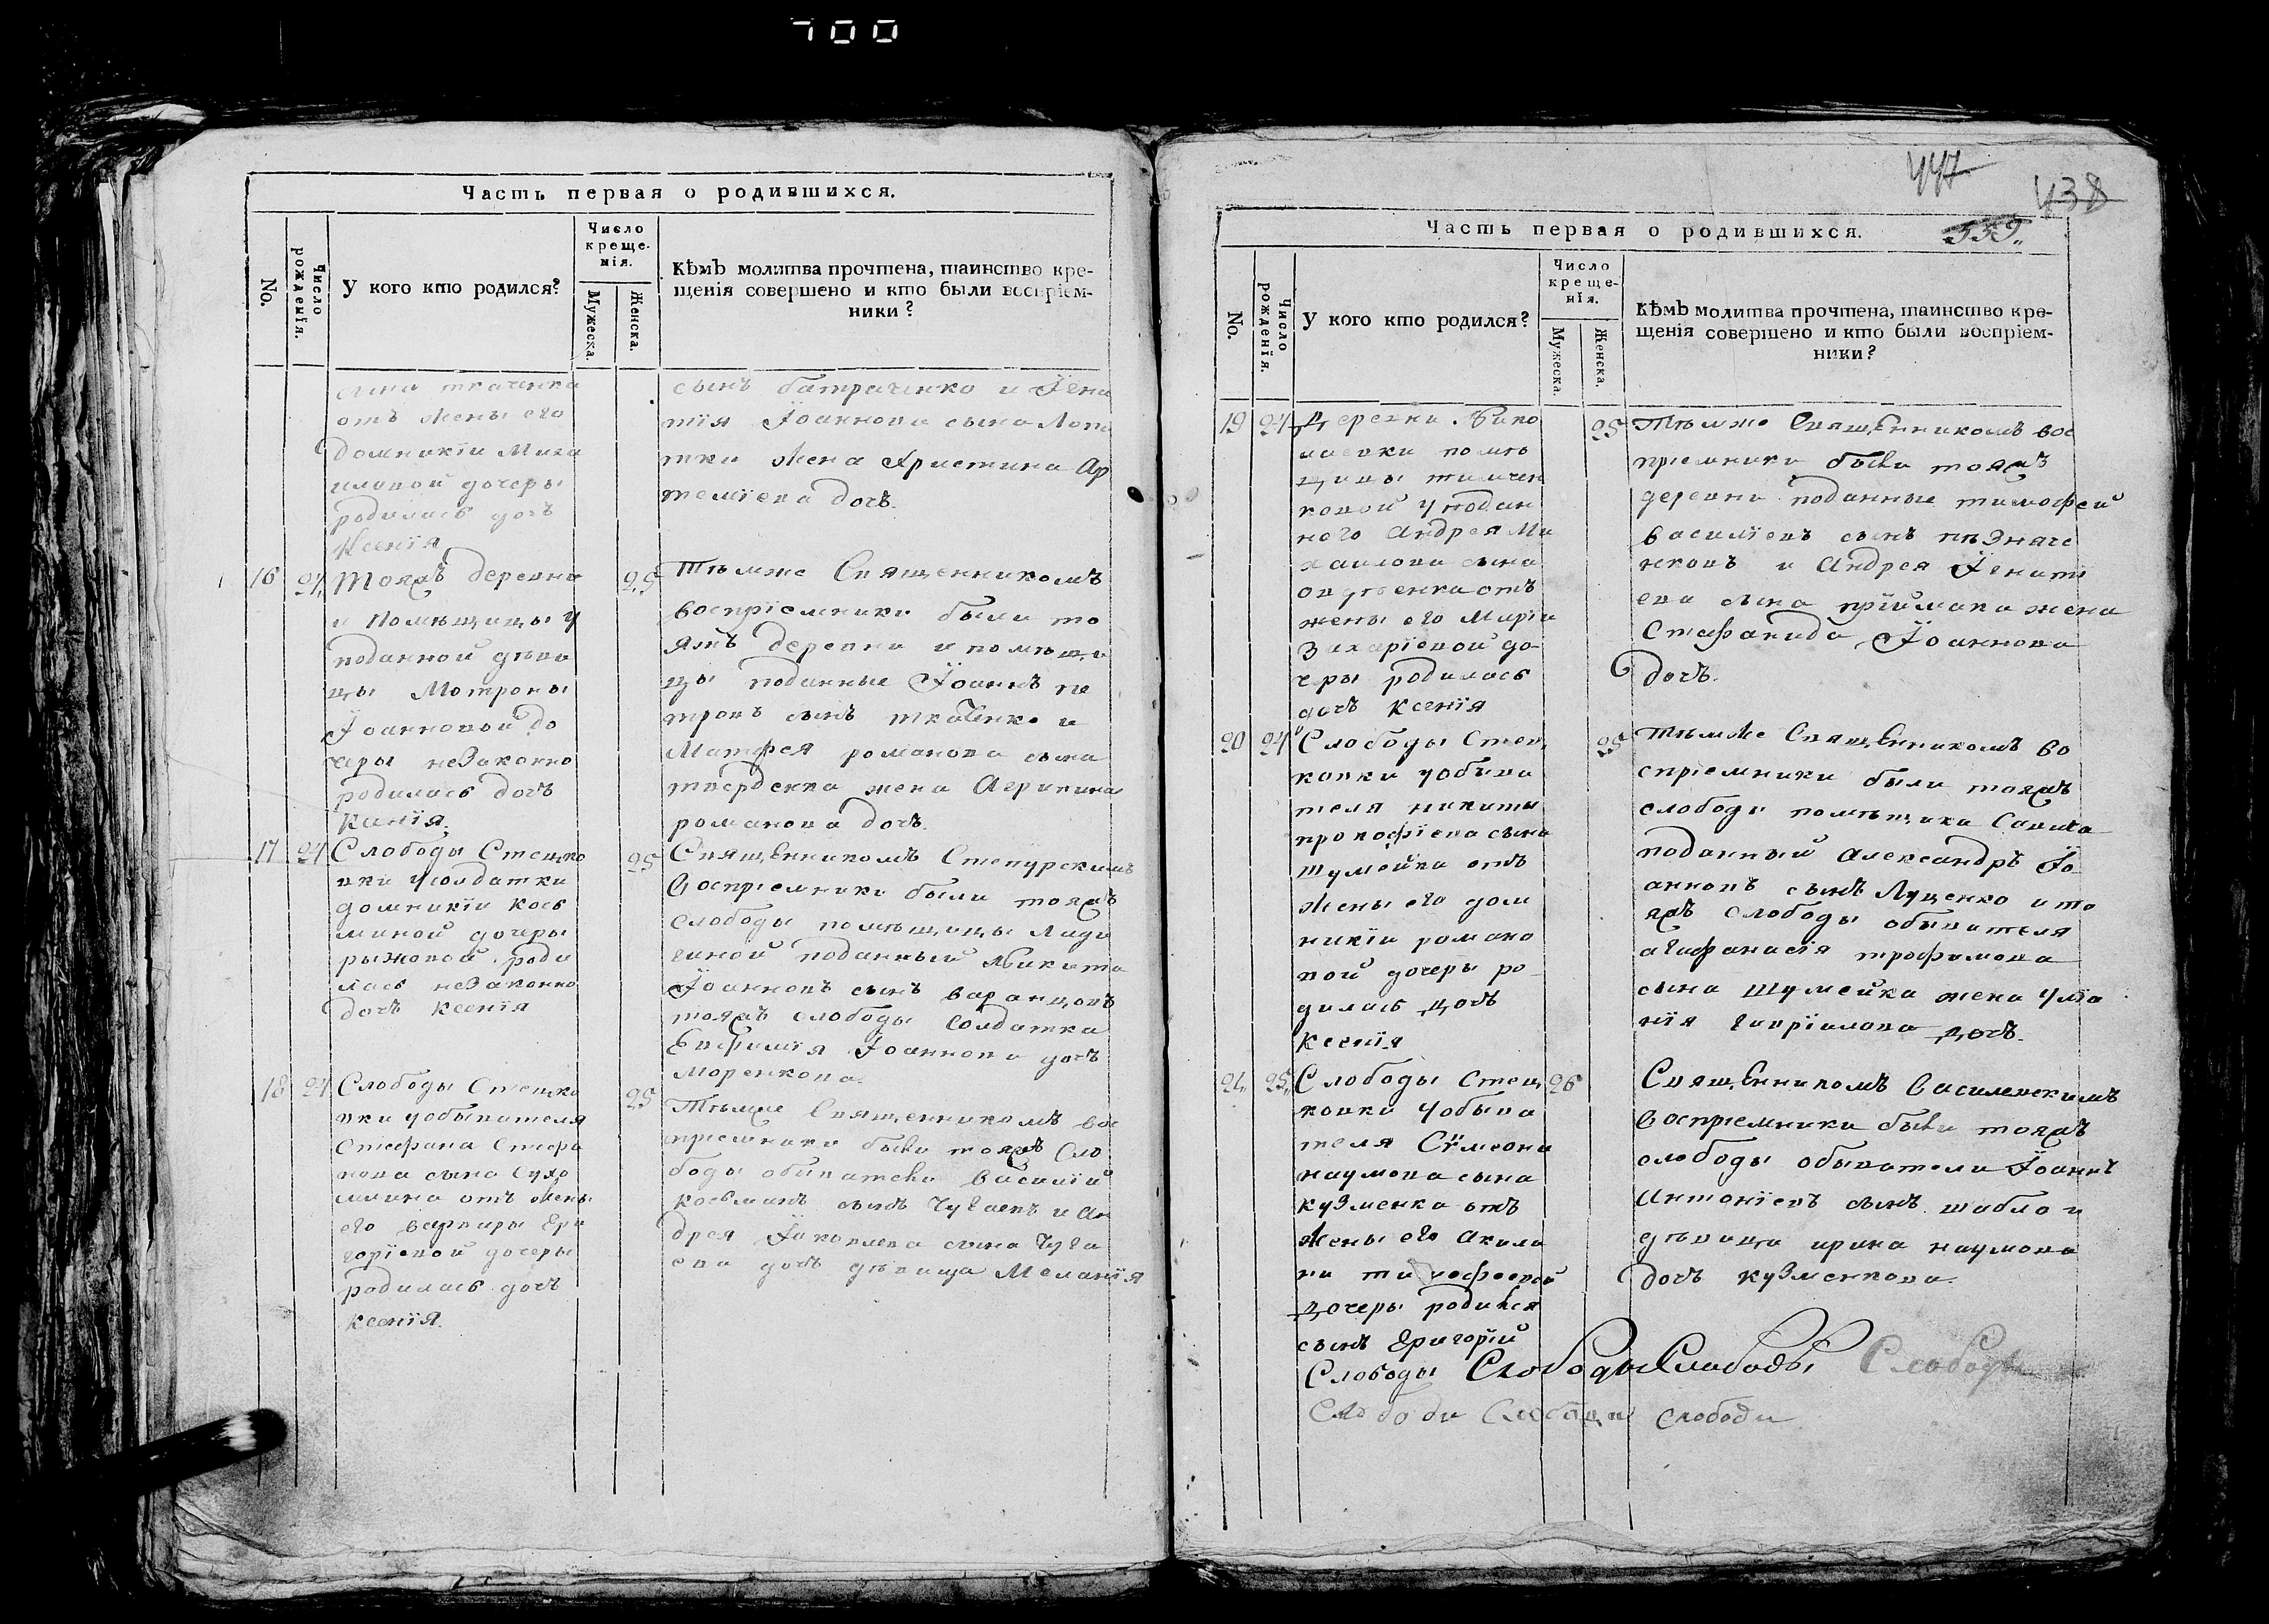 700
Часть первая о родившихся.
No.
Число рожденїя.
У кого кто родился?
Число
креще-
нїя.
Мужеска.
Женска.
Кѣмъ молитва прочтена, таинство кре-
щенїя совершено и кто были воспрїем-
ники?
сына ткаченка
отъ жены его
домникїи Миха
иловой дочеры
родилась дочъ
Ксенїя
сынъ батраченко и Їгна
тїя Їоаннова сына Лопа
тки жена Христина Ар
темїева дочъ.
16
24
Тояжъ деревни
и помѣщицы у
поданной дѣви
цы Мотроны
Їоанновой до
черы незаконно
родилась дочъ
25
Тѣмже Священникомъ
воспрїемники были то
яжъ деревни и помѣщи
цы поданные Їоаннъ пе
тровъ сынъ ткаченко и
Матфея романова сына
твердохла жена Агрипина
романова дочъ.
17
24
Слободы Стецко
вки усолдатки
домникїи козь
миной дочеры
рыжовой роди
лась незаконно
дочъ ксенїя
25
Священникомъ Степурскимъ
воспрїемники были тояжъ
слободы помѣщицы Лади
гиной поданный Никита
Їоанновъ сынъ варанцовъ
тояжъ слободы солдатка
Евфимїя Їоаннова дочъ
Моренкова.
18
24
Слободы Стецко
вки уобывателя
Стефана Стефа
нова сына Сухо
млина отъ жены
его варвары Гри
горїевой дочеры
родилась дочъ
ксенїя.
25
Тѣмже Священникомъ вос
прїемники были тояжъ Сло
боды обыватели василїй
козьминъ сынъ Чугаевъ и Ан
дрея Їаковлева сына Чуга
ева дочъ дѣвица Меланїя
447
438
Часть первая о родившихся.
No.
Число рожденїя.
У кого кто родился?
Число
креще-
нїя.
Мужеска.
Женска.
Кѣмъ молитва прочтена, таинство кре-
щенїя совершено и кто были воспрїем-
ники?
19
24
Деревни Нико
лаевки помѣ
щицы тимчен
ковой у подан
ного Андрея Ми
хаилова сына
отъ
жены его Марїи
Захарїевой до-
черы родилась
дочъ Ксенїя
25
Тѣмже Священникомъ вос
прїемники были тояжъ
деревни поданные тимофей
василїевъ сынъ
и Андрея Їгнатї
ева сына прїймака жена
Стефанида Їоаннова
дочъ.
20
24
Слободы Стец
ковки уобыва
теля никиты
прокофїева сына
шумейка отъ
жены его дом
никїи романо
вой дочеры ро-
дилась дочъ
Ксенїя
25
Тѣмже Священникомъ во
спрїемники были тояжъ
слободы помѣщика Савича
поданный александръ Їо
анновъ сынъ Луценко и то
яжъ слободы обывателя
трофимова
сына Шумейка жена Улїа
нїя гаврїилова дочъ.
21.
25.
Слободы Стец
ковки уобыва
теля Сѵмеона
наумова сына
кузменка отъ
жены его акили
ны тимофеевой
дочеры родился
сынъ Григорїй
26
Священникомъ василевскимъ
воспрїемники были тояжъ
слободы обыватели Їоаннъ
Антонїевъ сынъ шабло и
дѣвица ирина наумова
дочъ кузменкова.
Слободы Слободы Слободы Слободы
Слободи Слободи слободи